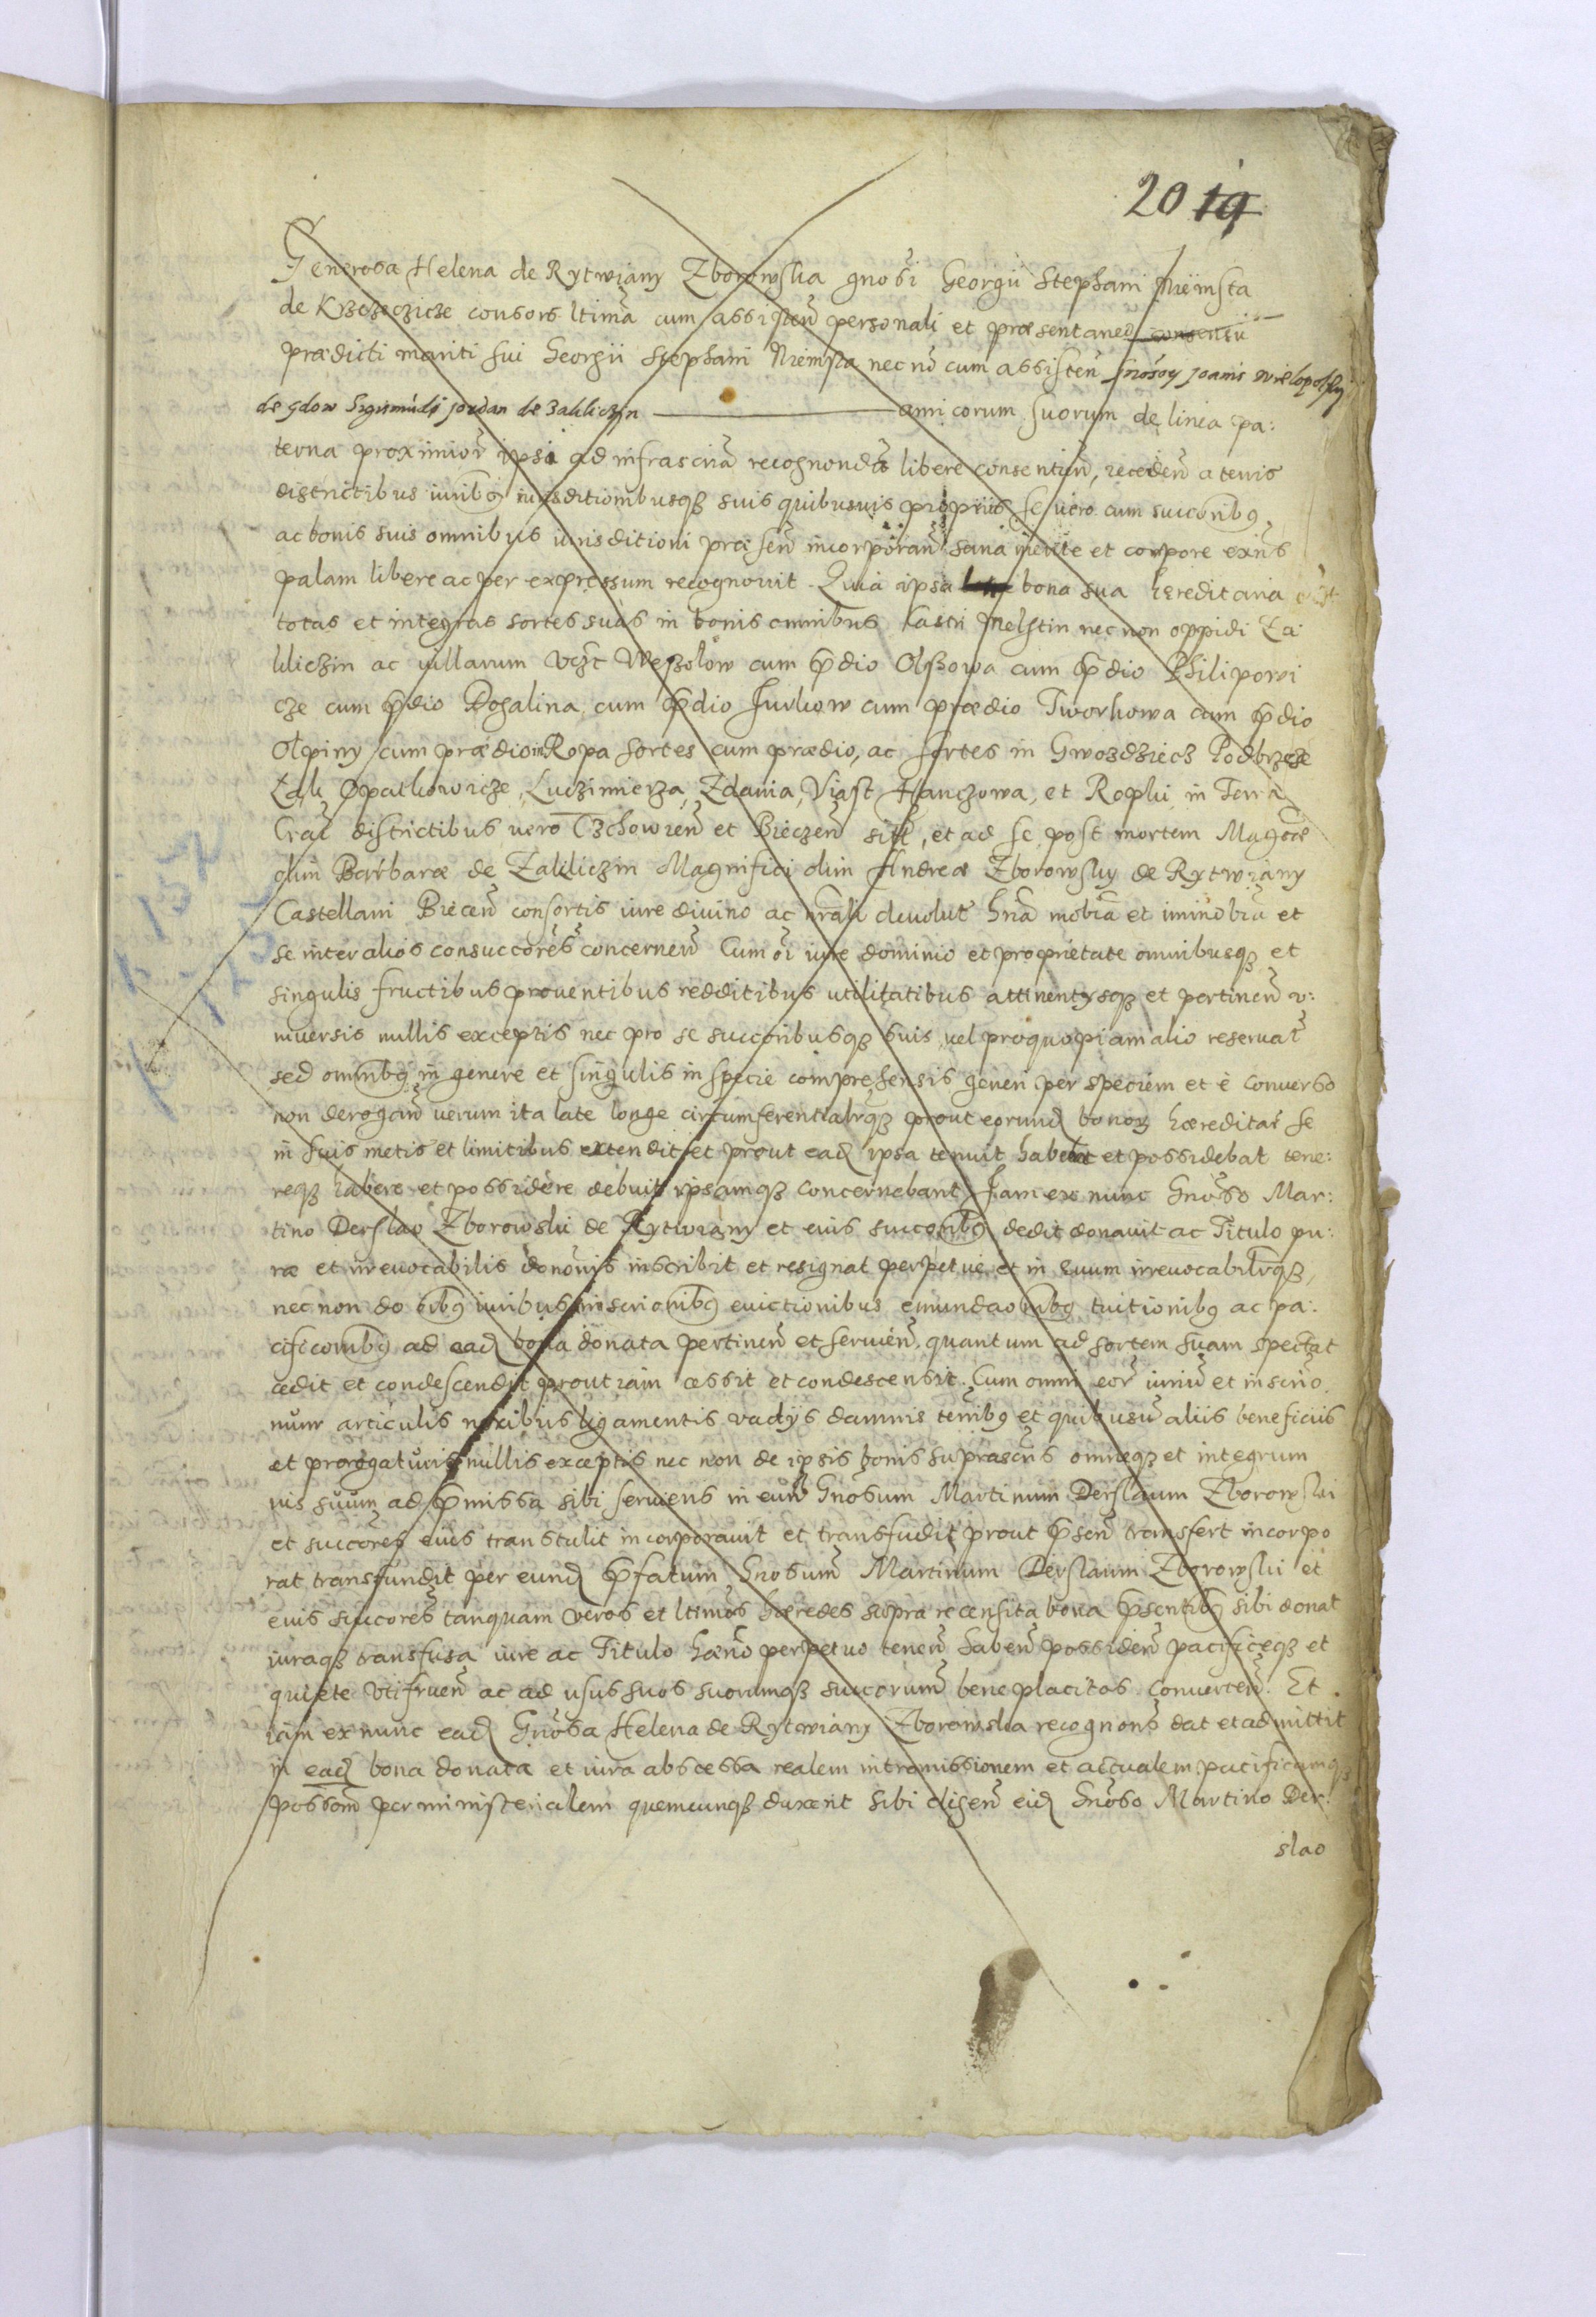 20 19
Generosa Helena de Rytwiany Zborowska gnosi Georgii Stephani Niemsta
de Krzczęczicze consors ltima cum assisten personali et præsentaneo consensu
prædicti mariti sui Georgii Stephani Niemsta nec nō cum assisten gnosor Joannis Wielopolsky
de gdow Sigismūdi Jordan de Zakliczyn amicorum suorum de linea pa:
terna proximior ipsa ad infrascrita recognondā libere consentien, receden a terris
districtibus iuribꝫ iurisditionibusqꝫ suis quibusuis propriis se vero cum succoribꝫ
ac bonis suis omnibus iurisditioni præsen incorporan sana mente et corpore exiñs
palam libere ac per expressum recognouit Quia ipsa bona sua hereditaria
totas et integras sortes suas in bonis omnibus Castri Melstin nec non oppidi Za
kliczin ac villarum vczt Wesolow cum p̄dio Olszowa cum p̄dio Philipowi
cze cum p̄dio Roßalina cum p̄dio Jurkow cum prædio Tworkowa cum p̄dio
Olpiny cum prædio in Ropa sortes cum prædio, ac sortes in Gwozdziecz Podbrzezie
Łąk Opatkowicze, Luczimierza, Zdania, Viast Hanczowa, et Ropki in Terra
Craē districtibus vero Czchowien et Bieczen sitt, et ad se post mortem Magcæ
olim Barbaræ de Zakliczin Magnifici olim Andreæ Zborowsky de Rytwiany
Castellani Biecen consortis iure diuino ac nrali deuolut hnā mobiā et iminobiā et
se inter alios consuccores concernen Cum oi iure dominio et proprietate omnibusqꝫ et
singulis fructibus prouentibus redditibus utilitatibus attinentysqꝫ et pertinen v:
niuersis nullis exceptis nec pro se succoribusqꝫ suis vel pro quopiam alio reseruat
sed omnibꝫ in genere et singulis in specie compræhensis generi per speciem et e conuerso
non derogan verum ita late longe circumferentialrqꝫ prout eorund bonor hæreditas se
in suis metis et limitibus extendit et prout ead ipsa tenuit habebat et possidebat tene:
reqꝫ habere et possidere debuit ipsamqꝫ concernebant Jam ex nunc Gnoso Mar:
tino Derslao Zborowski de Rytwiany et eius succoribꝫ dedit donauit ac Titulo pu:
ræ et irreuocabilis dononis inscribit et resignat perpetue et in æuum irreuocabilrqꝫ,
nec non do oibꝫ iuribus inscrionibꝫ euictionibus emundaonibꝫ tuitionibꝫ ac pa:
cificonibꝫ ad ead bona donata pertinen et seruien, quantum ad sortem suam spectat
cedit et condescendit prout iam cessit et condescendit. Cum omni eor iuriū et inscrio
num articulis nexibus ligamentis vadijs damnis tenribꝫ et quibusu aliis beneficiis
et prorogatiuis nullis exceptis nec non de ipsis bonis suprascris omneqꝫ et integrum
ius suum ad p̄missa sibi seruiens in eund Gnosum Martinum Derslaum Zborowski
et succores eius transtulit incorporauit et transfudit prout p̄sen transfert incorpo
rat transfundit per eund p̄fatum Gnosum Martinum Derslaum Zborowski et
euis succores tanquam veros et ltimos hæredes supra recensita bona p̄sentibꝫ sibi donat
iuraqꝫ transfusa iure ac Titulo hærio perpetuo tenen haben possiden pacificeqꝫ et
quiete vtifruen ac ad usus suos suorumqꝫ succorum beneplacitos conuerten. Et
iam ex nunc ead Gnosa Helena de Rytwiany Zborowska recognons dat et admittit
in ead bona donata et iura abscessa realem intromissionem et actualem pacificamqꝫ
possom per ministerialem quemcunqꝫ duxerit sibi eligen eid Gnoso Martino Der
slao